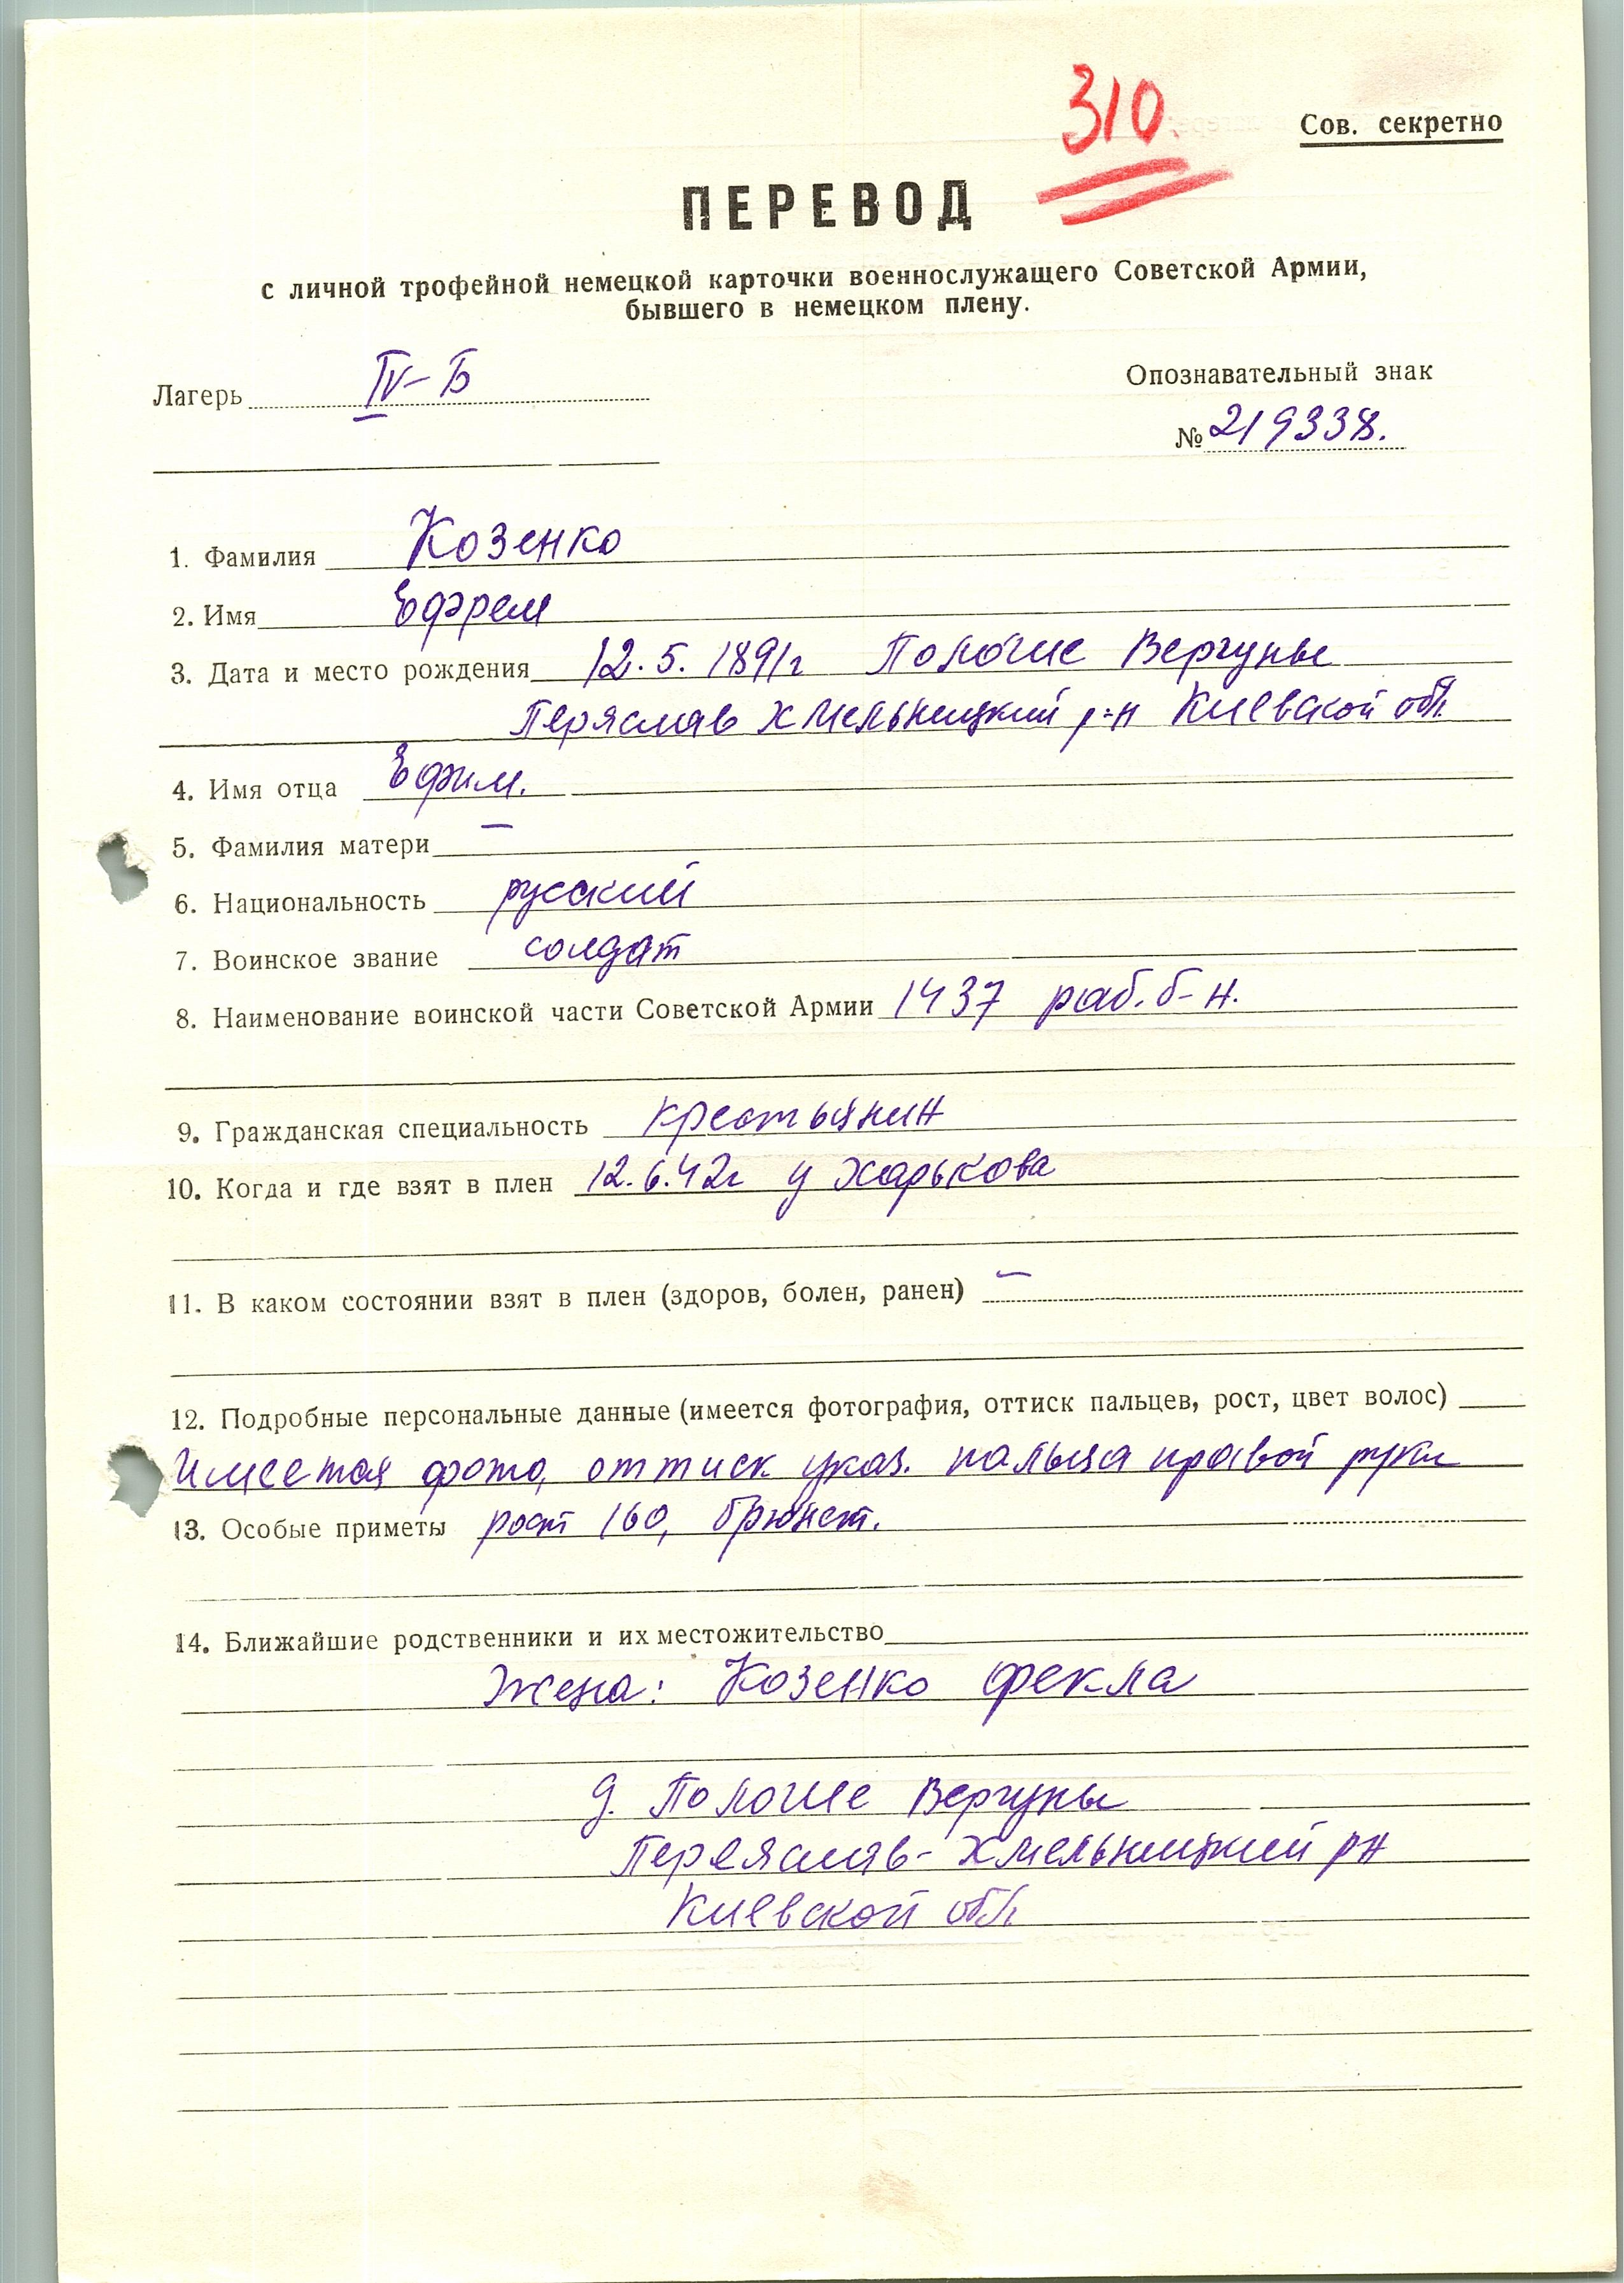 310
Сов. секретно
ПЕРЕВОД
с личной трофейной немецкой карточки военнослужащего Советской Армии,
бывшего в немецком плену.
Лагерь IV-Б
Опознавательный знак
№ 219338.
1. Фамилия Козенко
2. Имя Ефрем
3. Дата и место рождения 12.5.1891г Пологие Вергуны
Переслав Хмельницкий р-н Киевской обл.
4. Имя отца Ефим.
5. Фамилия матери –
6. Национальность русский
7. Воинское звание солдат
8. Наименование воинской части Советской Армии 1437 раб. б-н.
9. Гражданская специальность крестьянин
10. Когда и где взят в плен 12.6.42г у Харькова
11. В каком состоянии взят в плен (здоров, болен, ранен) –
12. Подробные персональные данные (имеется фотография, оттиск пальцев, рост, цвет волос)
Имеется фото, оттиск указ. пальца правой руки
13. Особые приметы рост 160, брюнет.
14. Ближайшие родственники и их местожительство
Жена: Козенко Фекла
д. Пологие Вергуны
Переяслав-Хмельницкий рн
Киевской обл.